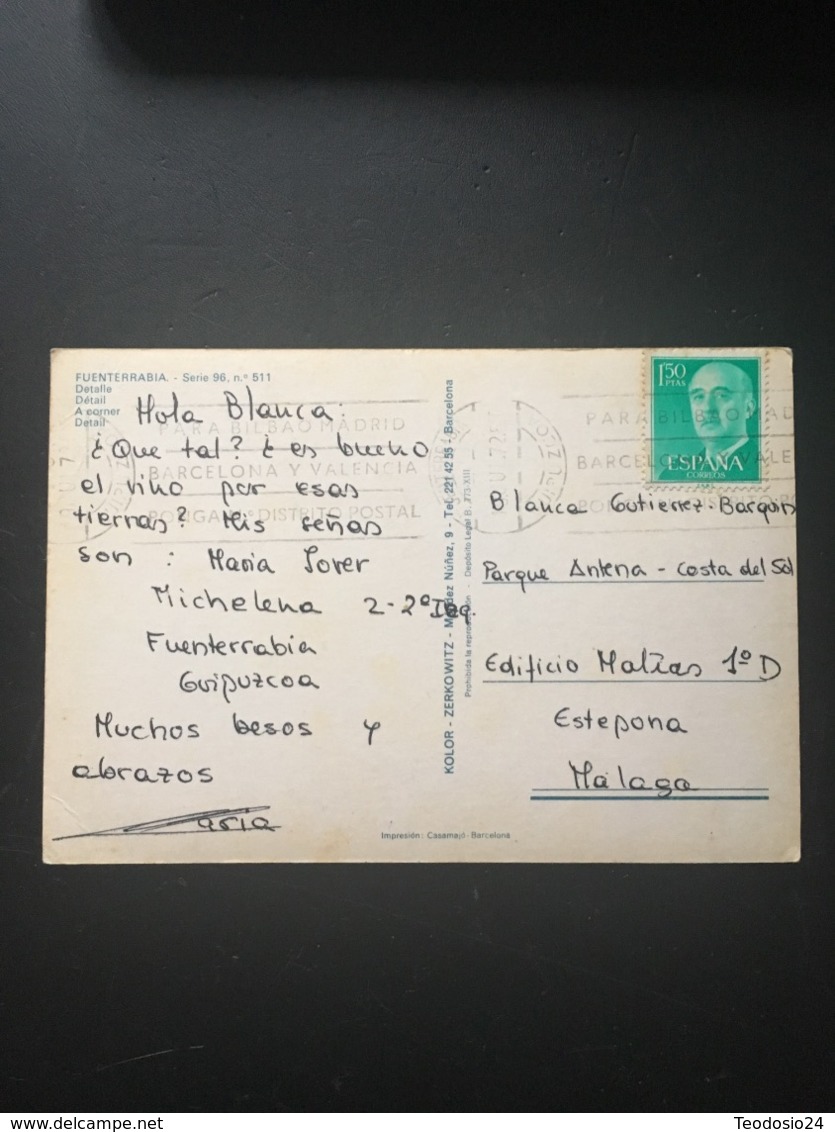 FUENTERRABIA. - Serie 96, n.º 511
Detalle
Détail
A corner
Detail
Hola Blanca:
¿Que tal? ¿es bueno
el vino por esas
tierras? Mis señas
son : Maria Sorer
Michelena 2-2º Izq.
Fuenterrabia
Guipuzcoa
Muchos besos y
abrazos
Maria
PARA BILBAO MADRID
BARCELONA Y VALENCIA
PONGA N.º DISTRITO POSTAL
KOLOR - ZERKOWITZ - Méndez Núñez, 9 - Tel. 221 42 55 - Barcelona
Prohibida la reproducción - Depósito Legal B. 773-XIII
1'50
PTAS
ESPAÑA
CORREOS
PARA BILBAO MAD
BARCELONA Y VALE
Blanca Gutierrez-Barquin
Parque Antena - Costa del Sol
Edificio Matias 1º D
Estepona
Málaga
Impresión: Casamajó - Barcelona
www.delcampe.net
Teodosio24